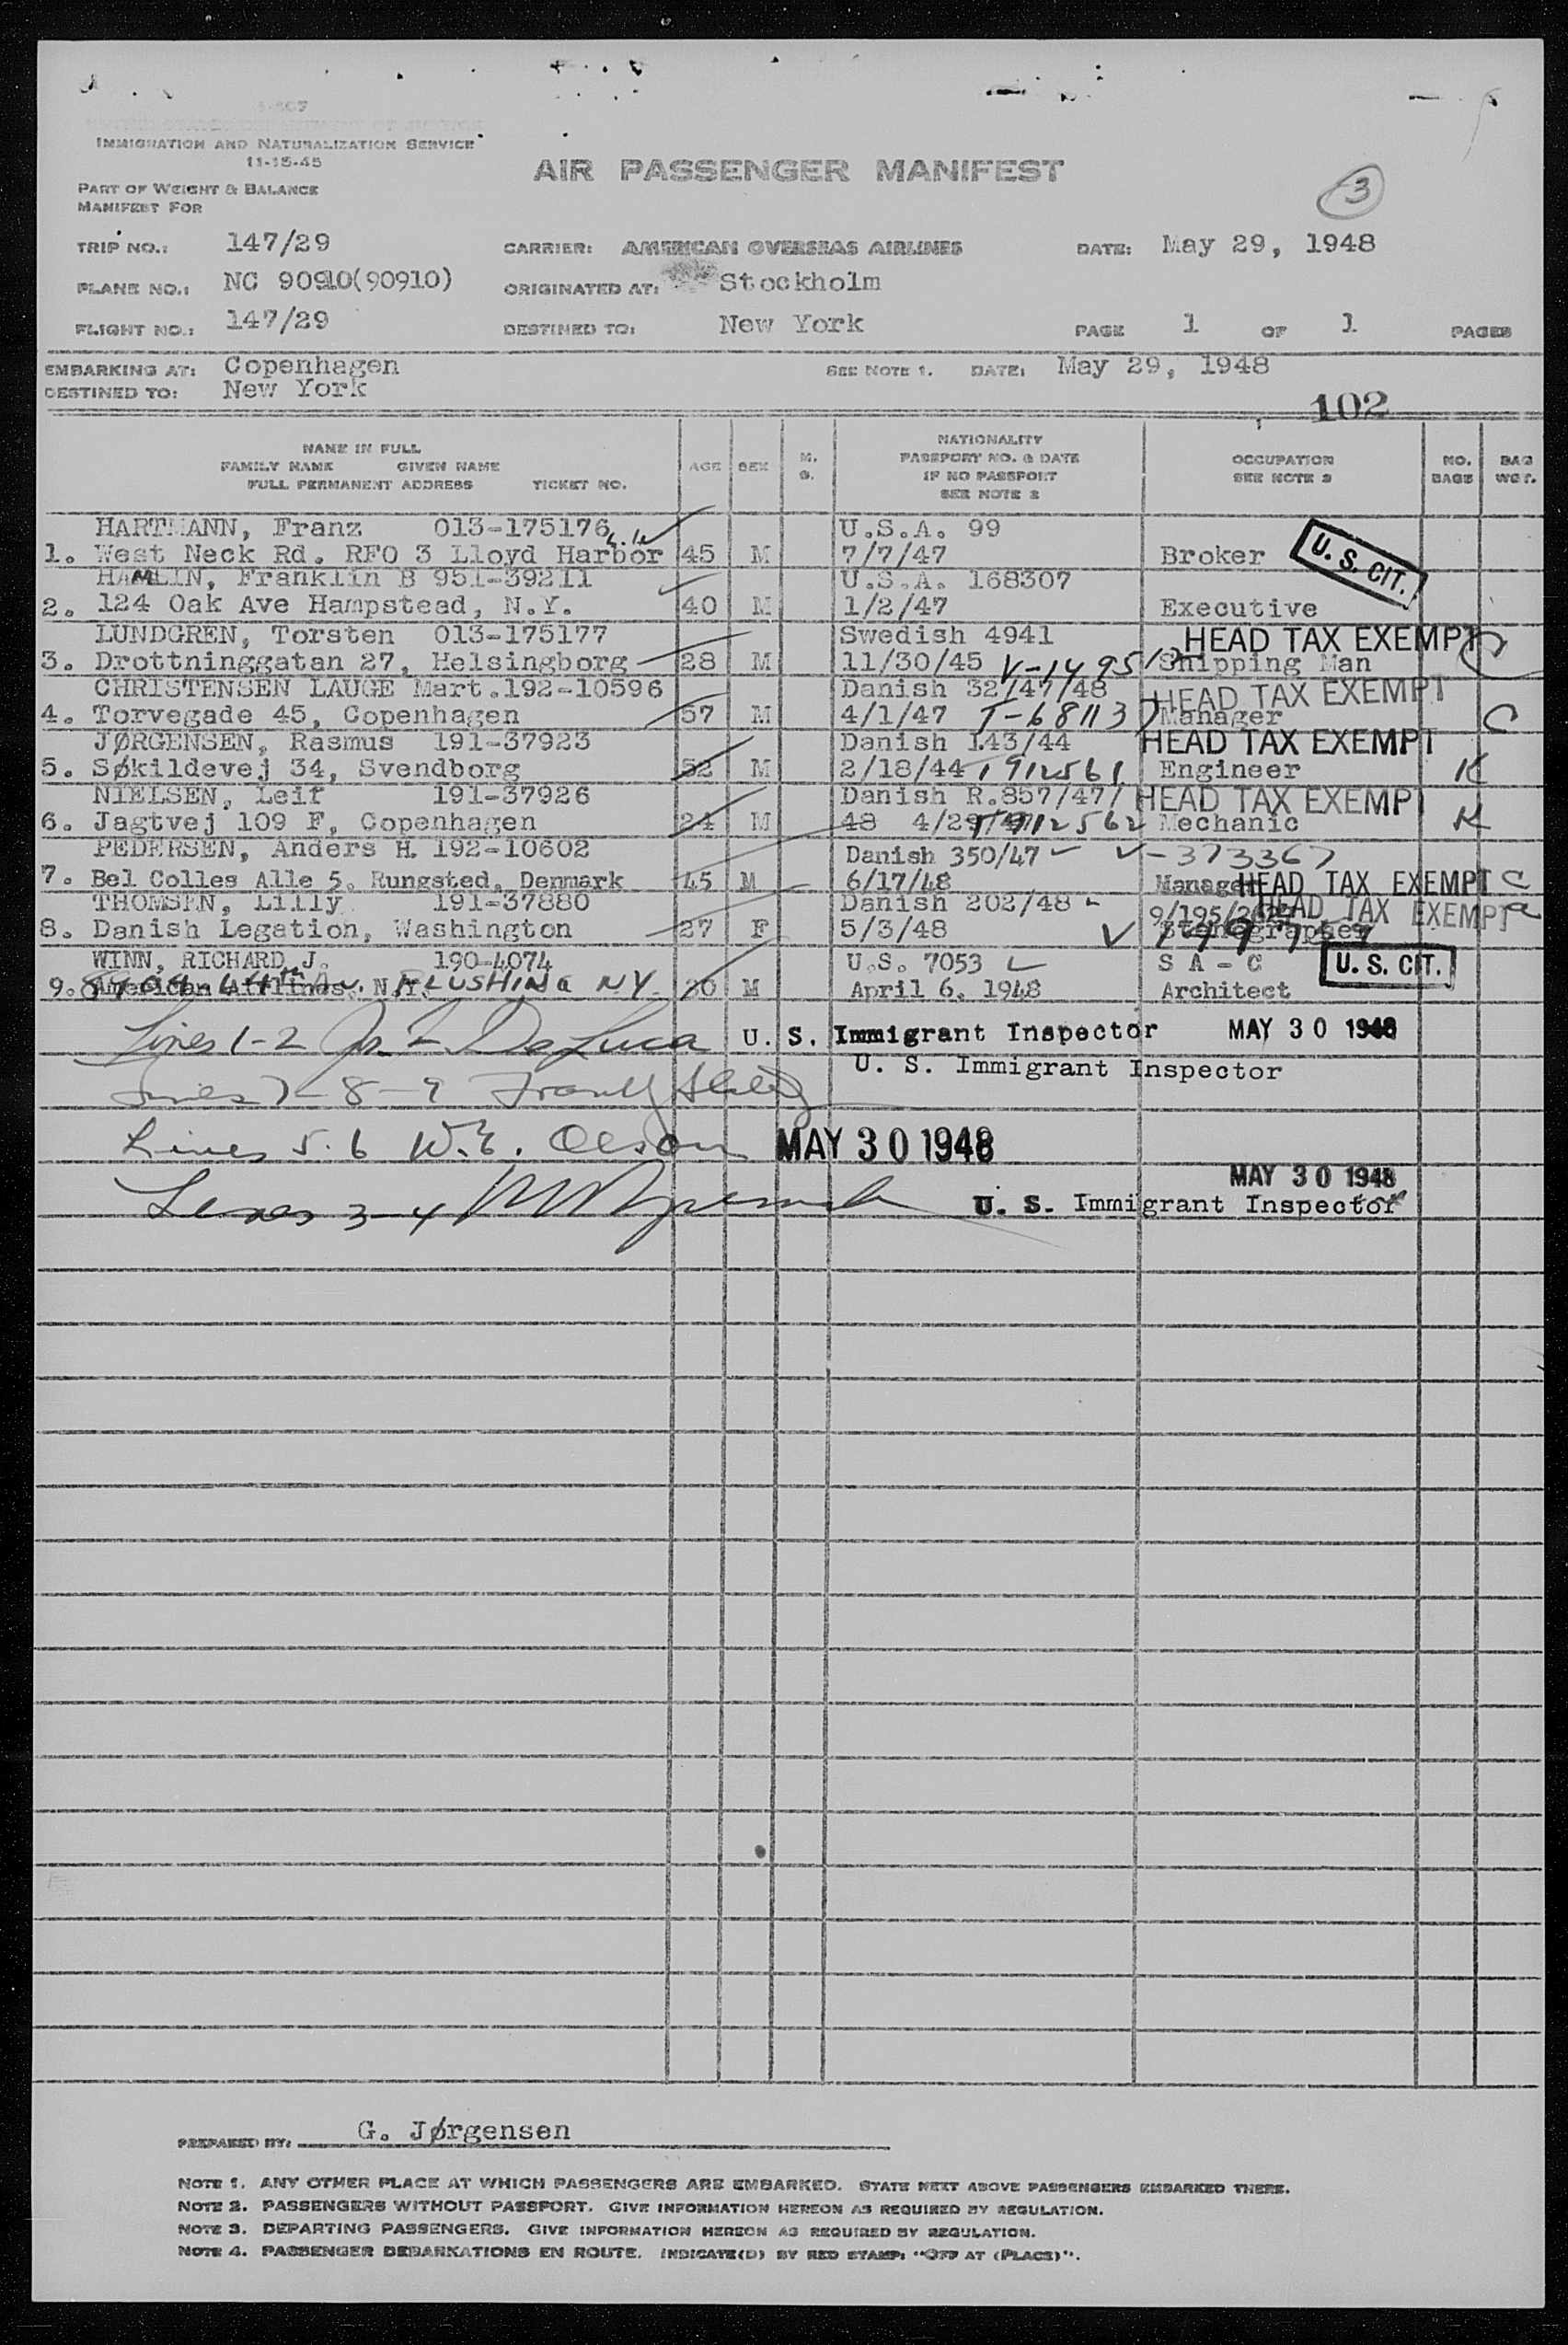 IMMIGRATION AND NATURALIZATION SERVICE
11-15-45
AIR PASSENGER MANIFEST
3
PART OF WEIGHT & BALANCE
MANIFEST FOR
TRIP NO.: 147/29 CARRIER: AMERICAN OVERSEAS AIRLINES DATE: May 29, 1948
PLANE NO.: NC 90910(90910) ORIGINATED AT: Stockholm
FLIGHT NO.: 147/29 DESTINED TO: New York PAGE 1 OF 1 PAGES
EMBARKING AT: Copenhagen SEE NOTE 1. DATE: May 29, 1948
DESTINED TO: New York
102
NAME IN FULL
FAMILY NAME GIVEN NAME
FULL PERMANENT ADDRESS TICKET NO.
AGE SEX M. S.
NATIONALITY
PASSPORT NO. & DATE
IF NO PASSPORT
SEE NOTE 2
OCCUPATION
SEE NOTE 3
NO. BAGS
BAG WGT.
HARTMANN, Franz 013-175176 U.S.A. 99
1. West Neck Rd. RFO 3 Lloyd Harbor 45 M 7/7/47 Broker U. S. CIT.
HAMLIN, Franklin B 951-39211 U.S.A. 168307
2. 124 Oak Ave Hampstead, N.Y. 40 M 1/2/47 Executive
LUNDGREN, Torsten 013-175177 Swedish 4941 HEAD TAX EXEMPT
3. Drottninggatan 27, Helsingborg 28 M 11/30/45 Shipping Man
CHRISTENSEN LAUGE Mart.192-10596 Danish 32/47/48 HEAD TAX EXEMPT
4. Torvegade 45, Copenhagen 57 M 4/1/47 T-68113 Manager C
JØRGENSEN, Rasmus 191-37923 Danish 143/44 HEAD TAX EXEMPT
5. Søkildevej 34, Svendborg 52 M 2/18/44 1912561 Engineer K
NIELSEN, Leif 191-37926 Danish R.857/47/ HEAD TAX EXEMPT
6. Jagtvej 109 F, Copenhagen 24 M 48 4/29/47 1912562 Mechanic K
PEDERSEN, Anders H. 192-10602 Danish 350/47 V-373367
7. Bel Colles Alle 5. Rungsted, Denmark 45 M 6/17/48 Manager HEAD TAX EXEMPT C
THOMSEN, Lilly 191-37880 Danish 202/48 HEAD TAX EXEMPT
8. Danish Legation, Washington 27 F 5/3/48 Stenographer
WINN, RICHARD J. 190-4074 U.S. 7053 S A - C U. S. CIT.
9. American Airlines, N.Y. FLUSHING NY 30 M April 6, 1948 Architect
Lines 1-2 DeLuca U. S. Immigrant Inspector MAY 30 1948
Lines 7-8-9 Frank U. S. Immigrant Inspector
Lines 5.6 W.E. Olson MAY 30 1948
MAY 30 1948
Lines 3-4 U. S. Immigrant Inspector
PREPARED BY: G. Jørgensen
NOTE 1. ANY OTHER PLACE AT WHICH PASSENGERS ARE EMBARKED. STATE NEXT ABOVE PASSENGERS EMBARKED THERE.
NOTE 2. PASSENGERS WITHOUT PASSPORT. GIVE INFORMATION HEREON AS REQUIRED BY REGULATION.
NOTE 3. DEPARTING PASSENGERS. GIVE INFORMATION HEREON AS REQUIRED BY REGULATION.
NOTE 4. PASSENGER DEBARKATIONS EN ROUTE. INDICATE(D) BY RED STAMP: "OFF AT (PLACE)".